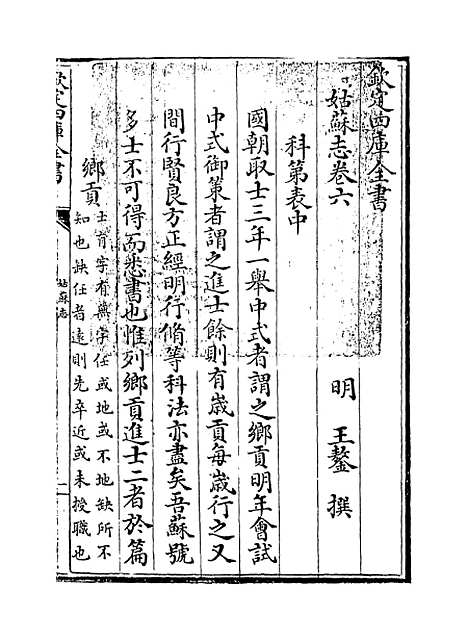 欽定四庫全書
姑蘇志卷六
明 王鏊 撰
科第表中
國朝取士三年一舉中式者謂之鄉貢明年會試
中式御策者謂之進士餘則有歲貢每歲行之又
間行賢良方正經明行脩等科法亦盡矣吾蘇號
多士不可得而悉書也惟列鄉貢進士二者於篇
鄉貢
士有字有無字任或地或不地缺所不
知也缺任者遠則先卒近或未授職也
欽定四庫全書
姑蘇志
一